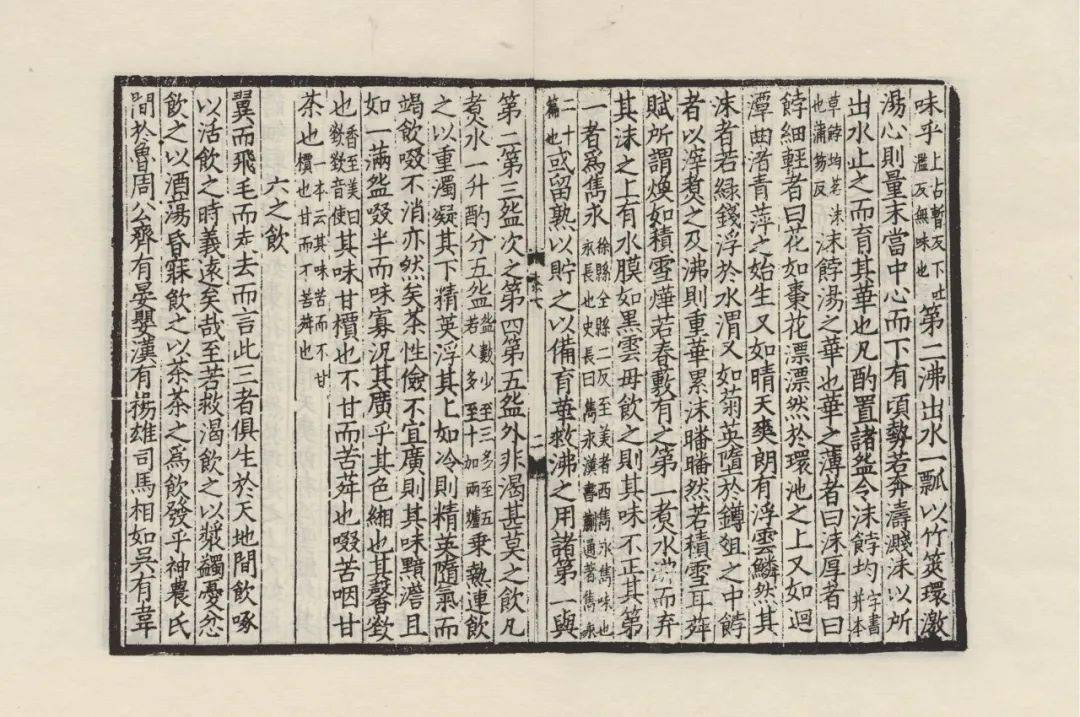 味乎上古暫反下吐濫反無味也第二沸出水一瓢以竹筴環激
湯心則量末當中心而下有頃勢若奔濤濺沫以所
出水止之而育其華也凡酌置諸盌令沫餑均字書并本
草餑均茗沫也蒲笏反沫餑湯之華也華之薄者曰沫厚者曰
餑細輕者曰花如棗花漂漂然於環池之上又如迴
潭曲渚青萍之始生又如晴天爽朗有浮雲鱗然其
沫者若綠錢浮於水渭又如菊英墮於鐏俎之中餑
者以滓煑之及沸則重華累沫皤皤然若積雪耳荈
賦所謂煥如積雪燁若春藪有之第一煑水沸而弃
其沫之上有水膜如黑雲母飲之則其味不正其第
一者為雋永徐縣全縣二反至美者西雋永雋味也永長也史長曰雋永漢書蒯通著雋永
二十篇也或留熟以貯之以備育華救沸之用諸第一與
二
第二第三盌次之第四第五盌外非渴甚莫之飲凡
煑水一升酌分五盌盌數少至三多至五若人多至十加兩爐乘熱連飲
之以重濁凝其下精英浮其上如冷則精英隨氣而
竭飲啜不消亦然矣茶性儉不宜廣則其味黯澹且
如一滿盌啜半而味寡況其廣乎其色緗也其馨𣣌
也香至美曰𣣌𣣌音使其味甘檟也不甘而苦荈也啜苦咽甘
茶也一本云其味苦而不甘檟也甘而不苦荈也
六之飲
翼而飛毛而走去而言此三者俱生於天地間飲啄
以活飲之時義遠矣哉至若救渴飲之以漿蠲憂忿
飲之以酒蕩昏寐飲之以茶茶之為飲發乎神農氏
間於魯周公齊有晏嬰漢有揚雄司馬相如吳有韋